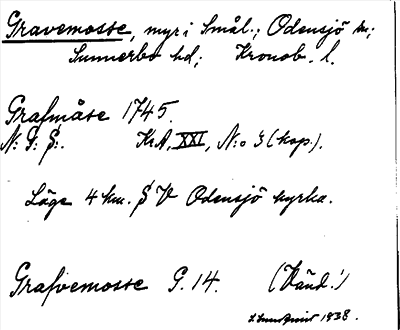 Gravemosse, myr i Smål.; Odensjö sn;
Sunnerbo hd; Kronob. l.
Grafmåse 1745.
N: I: S:. KrA, XXI, N:o 3 (kop.).
Läge 4 km. S V Odensjö kyrka.
Grafvemosse G. 14. (Känd.!)
1938.